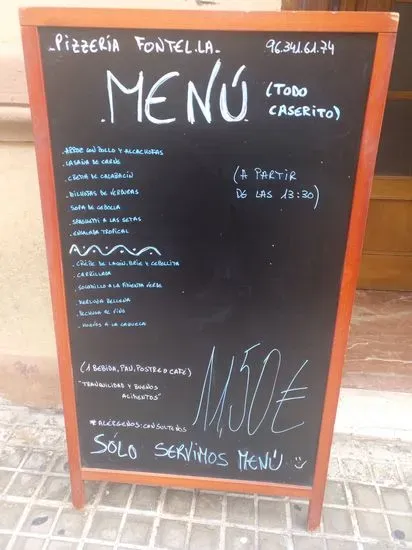 - PIZZERÍA FONTEL.LA - 96.341.61.74
MENÚ
(TODO CASERITO)
· ARROZ CON POLLO Y ALCACHOFAS
· LASAÑA DE CARNE
· CREMA DE CALABACÍN
(A PARTIR
DE LAS 13:30)
· RELLENAS DE VERDURAS
· SOPA DE CEBOLLA
· SPAGUETTI A LAS SETAS
· ENSALADA TROPICAL
· CREPE DE BRIE Y CEBOLLITA
· CARRILLADA
· SOLOMILLO A LA PIMIENTA VERDE
· MERLUZA RELLENA
· PECHUGA AL VINO
· HUEVOS A LA CAZUELA
(1 BEBIDA, PAN, POSTRE O CAFE)
"TRANQUILIDAD Y BUENOS
ALIMENTOS"
11,50€
*ALÉRGENOS: CONSULTENOS
SÓLO SERVIMOS MENÚ